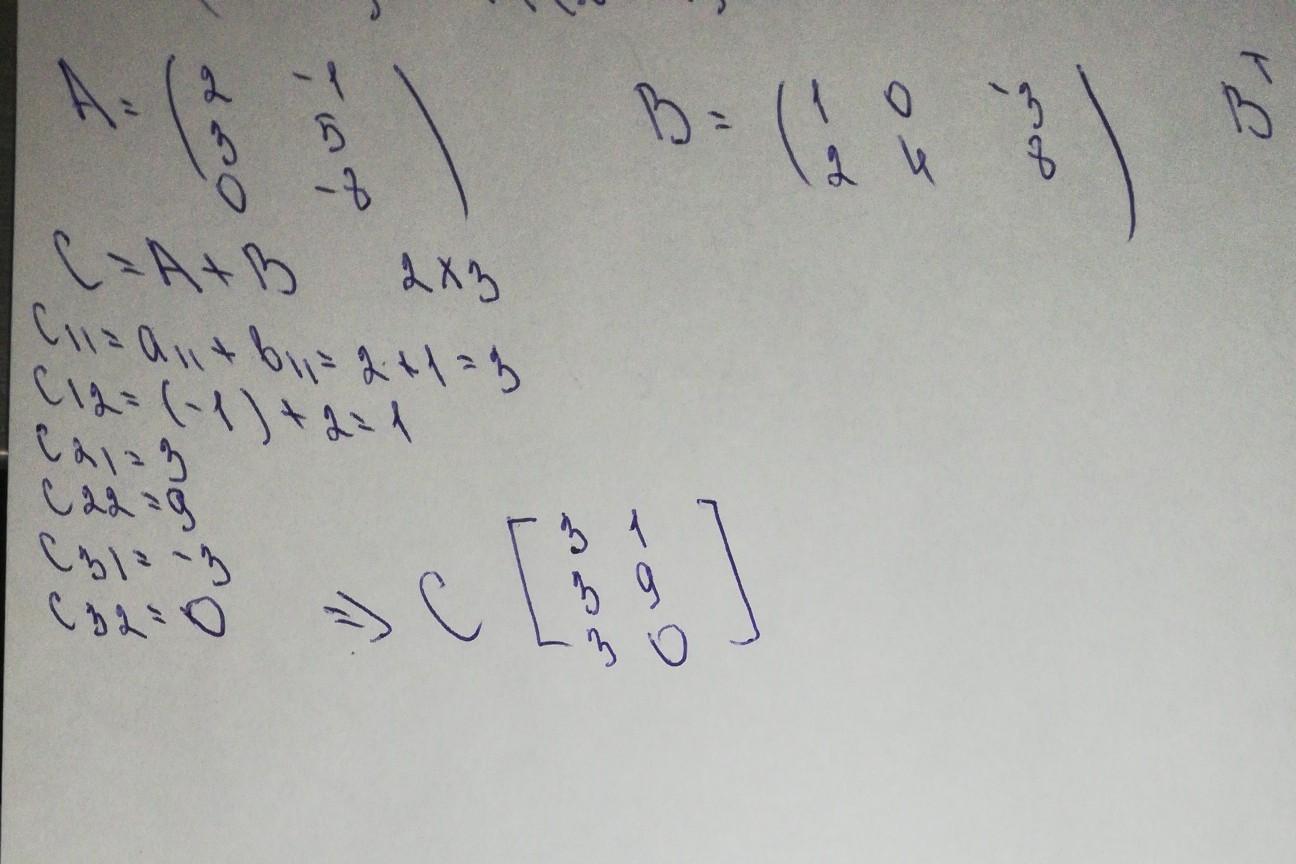 A = ( 2 -1 B = ( 1 0 -3 ) Bᵀ
3 5 ) 2 4 8
0 -8
C = A + B 2×3
C11 = a11 + b11 = 2 + 1 = 3
C12 = (-1) + 2 = 1
C21 = 3
C22 = 9
C31 = -3
C32 = 0 ⇒ C [ 3 1 ]
3 9
3 0